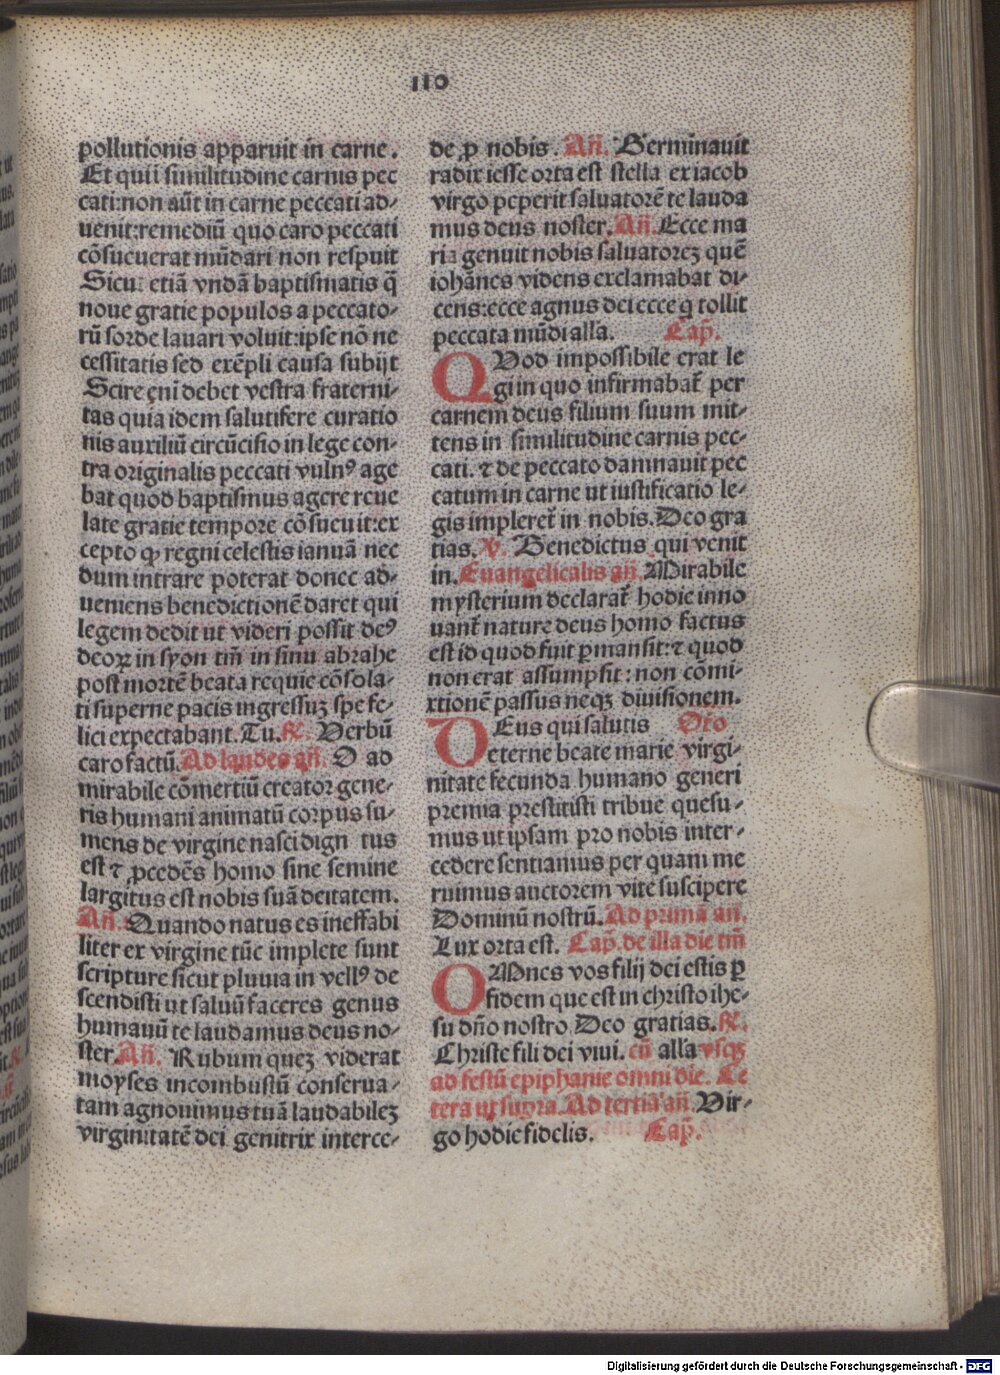 110
pollutionis apparuit in carne.
Et qui similitudine carnis pec
cati:non aūt in carne peccati ad-
uenit:remediū quo caro peccati
cōsueuerat mūdari non respuit
Sicut etiā vndā baptismatis q̄
noue gratie populos a peccato-
rū sorde lauari voluit:ipse nō ne
cessitatis sed exēpli causa subijt
Scire eni debet vestra fraterni-
tas quia idem salutifere curatio
nis auxiliū circūcisio in lege con-
tra originalis peccati vulnꝰ age
bat quod baptismus agere reue
late gratie tempore cōsueuit:ex
cepto ꝙ regni celestis ianuā nec
dum intrare poterat donec ad-
ueniens benedictionē daret qui
legem dedit ut videri possit deꝰ
deoꝝ in syon tm̄ in sinu abrahe
post mortē beata requie cōsola-
ti superne pacis ingressuꝫ spe fe-
lici expectabant. Tu. ℟. Verbū
caro factū. Ad laudes añ. O ad
mirabile cōmertiū creator gene-
ris humani animatū corpus su-
mens de virgine nasci dign tus
est ⁊ ꝓcedēs homo sine semine
largitus est nobis suā deitatem.
Añ. Quando natus es ineffabi
liter ex virgine tūc implete sunt
scripture sicut pluuia in vellꝰ de
scendisti ut saluū faceres genus
humanū te laudamus deus no-
ster. Añ. Rubum queꝫ viderat
moyses incombustū conserua-
tam agnouimus tuā laudabileꝫ
virginitatē dei genitrix interce-
de ꝓ nobis. Añ. Germinauit
radix iesse orta est stella ex iacob
virgo peperit saluatorē te lauda
mus deus noster. Añ. Ecce ma
ria genuit nobis saluatoreꝫ quē
iohānes videns exclamabat di-
cens:ecce agnus dei ecce q̄ tollit
peccata mūdi alla. Cap̄.
QVod impossibile erat le
gi in quo infirmabat̄ per
carnem deus filium suum mit-
tens in similitudine carnis pec-
cati. ⁊ de peccato damnauit pec
catum in carne ut iustificatio le-
gis impleret̄ in nobis. Deo gra
tias. ℣. Benedictus qui venit
in. Euangelicalis añ. Mirabile
mysterium declarat̄ hodie inno
uant̄ nature deus homo factus
est id quod fuit ꝑmansit:⁊ quod
non erat assumpsit: non cōmi-
xtionē passus neqꝫ diuisionem.
DEus qui salutis Or̄o
eterne beate marie virgi-
nitate fecunda humano generi
premia prestitisti tribue quesu-
mus ut ipsam pro nobis inter-
cedere sentiamus per quam me
ruimus auctorem vite suscipere
Dominū nostrū. Ad primā añ.
Lux orta est. Cap̄. de illa die tm̄
OMnes vos filij dei estis ꝑ
fidem que est in christo ihe-
su dño nostro. Deo gratias. ℟.
Christe fili dei viui. cū alla vsqꝫ
ad festū epiphanie omni die. Ce
tera ut supra. Ad tertiā añ. Vir-
go hodie fidelis. Cap̄.
Digitalisierung gefördert durch die Deutsche Forschungsgemeinschaft - DFG